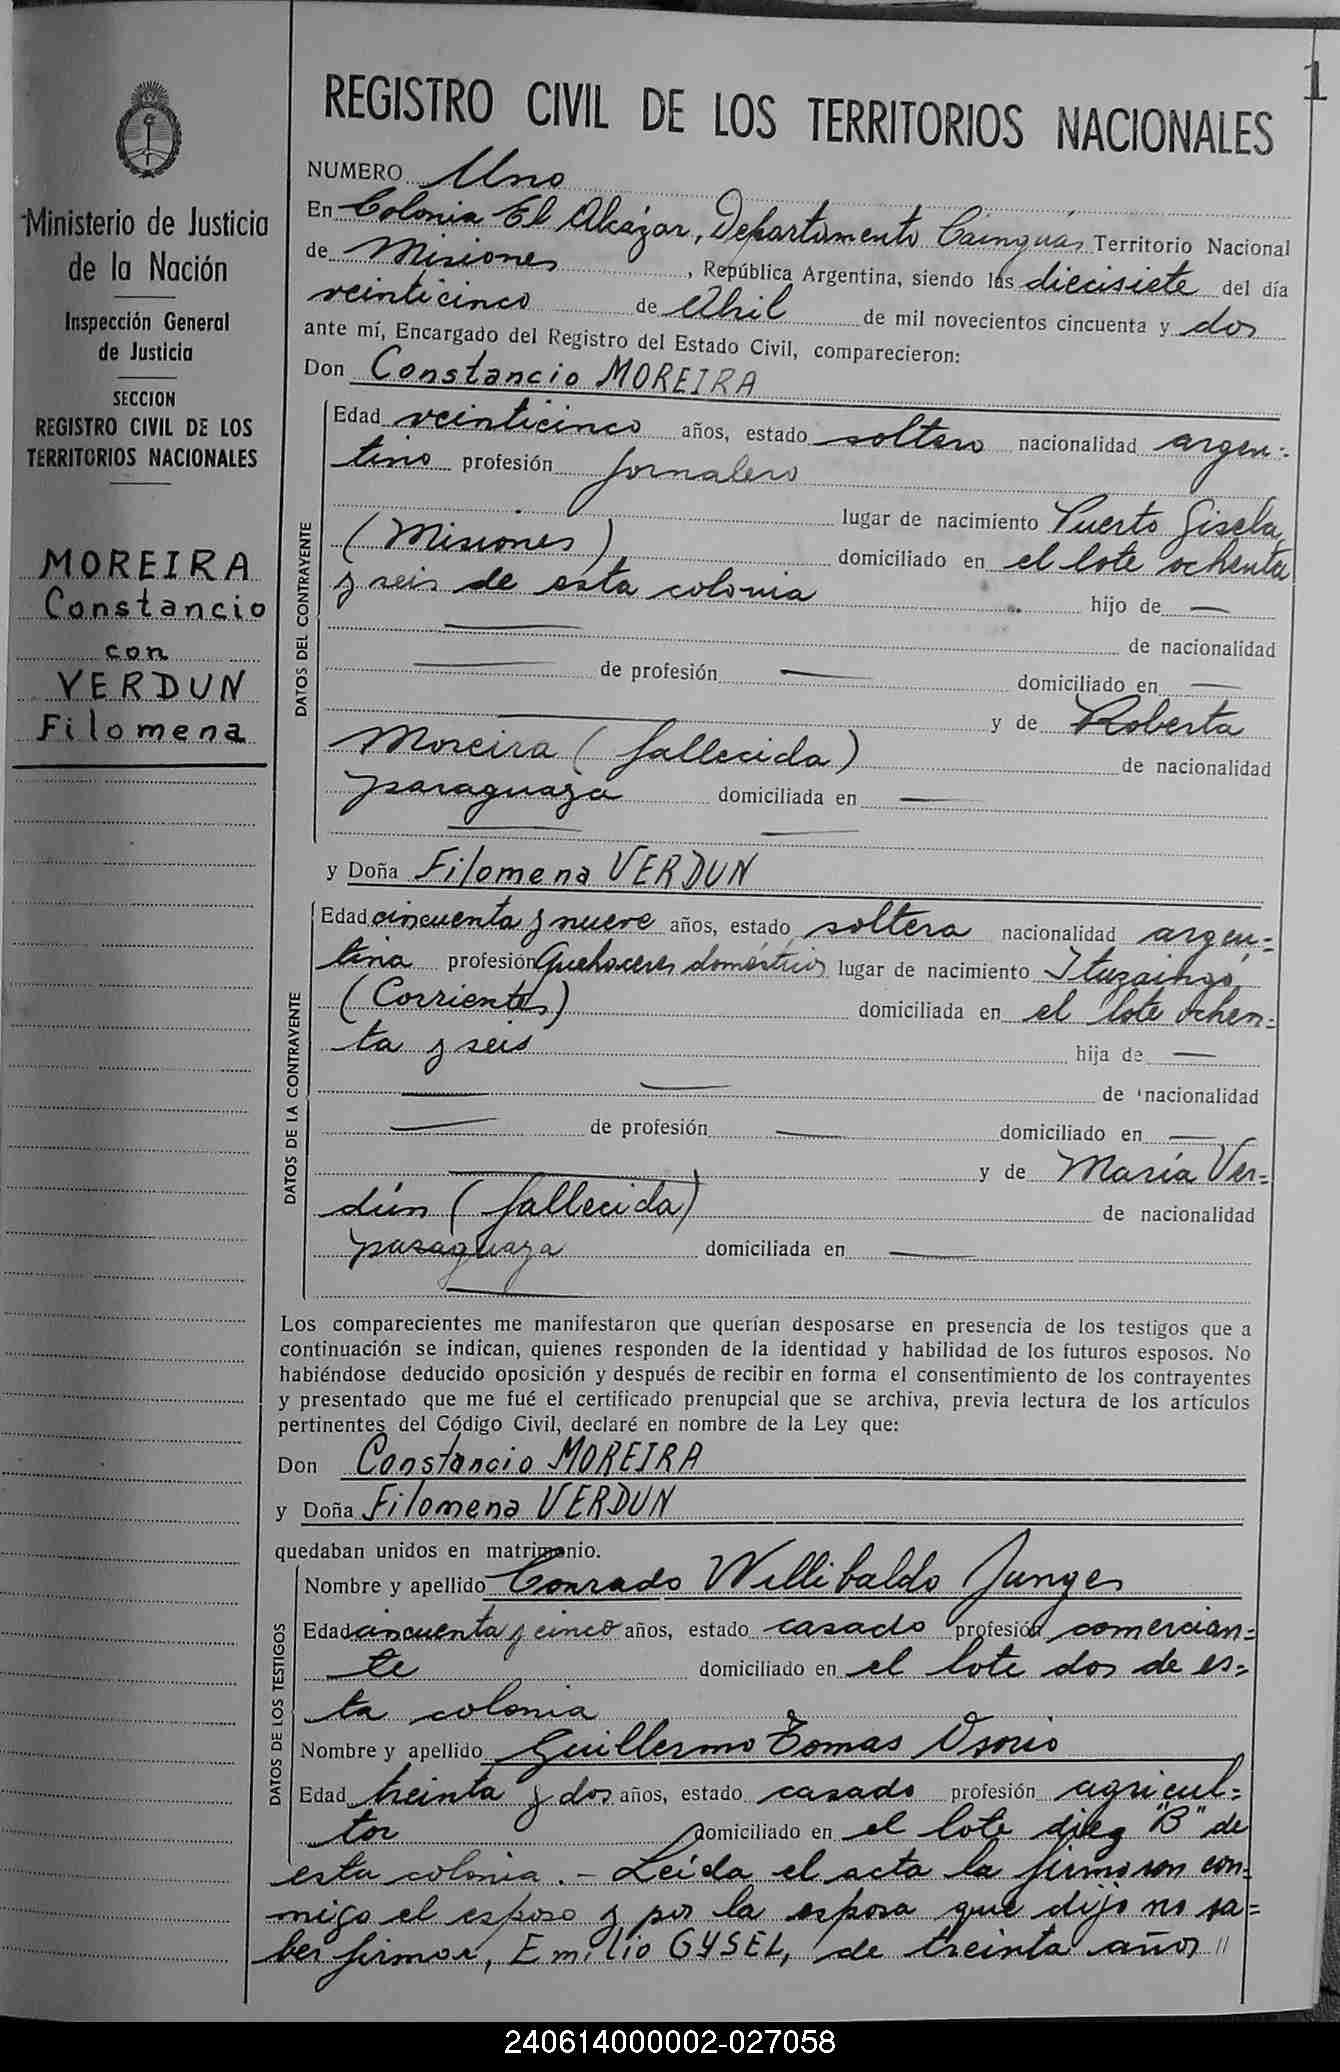 1
REGISTRO CIVIL DE LOS TERRITORIOS NACIONALES
Ministerio de Justicia
de la Nación
Inspección General
de Justicia
SECCION
REGISTRO CIVIL DE LOS
TERRITORIOS NACIONALES
MOREIRA
Constancio
con
VERDUN
Filomena
NUMERO Uno
En Colonia El Alcázar, Departamento Cainguás Territorio Nacional
de Misiones, República Argentina, siendo las diecisiete del día
veinticinco de Abril de mil novecientos cincuenta y dos
ante mí, Encargado del Registro del Estado Civil, comparecieron:
Don Constancio MOREIRA
DATOS DEL CONTRAYENTE
Edad veinticinco años, estado soltero nacionalidad argen=
tino profesión jornalero
lugar de nacimiento Puerto Gisela
(Misiones) domiciliado en el lote ochenta
y seis de esta colonia hijo de —
— de nacionalidad
— de profesión — domiciliado en —
— y de Roberta
Moreira (fallecida) de nacionalidad
paraguaya domiciliada en —
— —
y Doña Filomena VERDUN
DATOS DE LA CONTRAYENTE
Edad cincuenta y nueve años, estado soltera nacionalidad argen=
tina profesión Quehaceres domésticos lugar de nacimiento Ituzaingó
(Corrientes) domiciliada en el lote ochen=
ta y seis hija de —
— — de nacionalidad
— de profesión — domiciliado en —
— y de María Ver=
dún (fallecida) de nacionalidad
paraguaya domiciliada en —
—
Los comparecientes me manifestaron que querían desposarse en presencia de los testigos que a
continuación se indican, quienes responden de la identidad y habilidad de los futuros esposos. No
habiéndose deducido oposición y después de recibir en forma el consentimiento de los contrayentes
y presentado que me fué el certificado prenupcial que se archiva, previa lectura de los artículos
pertinentes del Código Civil, declaré en nombre de la Ley que:
Don Constancio MOREIRA
y Doña Filomena VERDUN
quedaban unidos en matrimonio.
DATOS DE LOS TESTIGOS
Nombre y apellido Conrado Willibaldo Junges
Edad cincuenta y cinco años, estado casado profesión comercian=
te domiciliado en el lote dos de es=
ta colonia
Nombre y apellido Guillermo Tomas Osorio
Edad treinta y dos años, estado casado profesión agricul=
tor domiciliado en el lote diez "B" de
esta colonia. - Leída el acta la firmaron con=
migo el esposo y por la esposa que dijo no sa=
ber firmar, Emilio GYSEL, de treinta años //
240614000002-027058